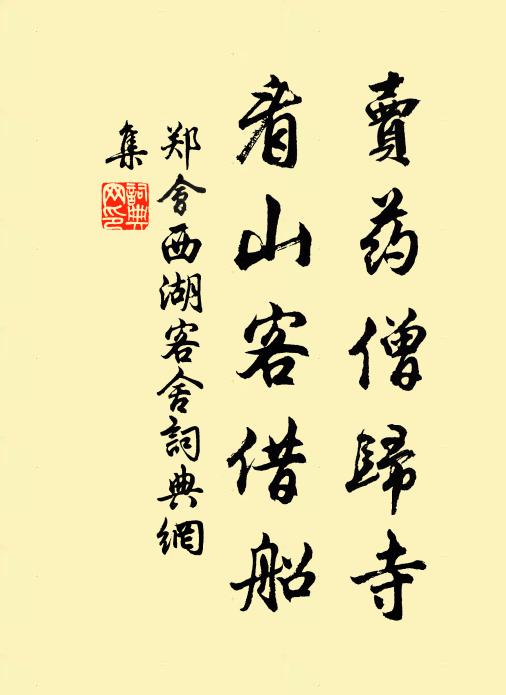 賣药僧歸寺
看山客借船
郑會西湖客舍詞典網
集
詞典网印